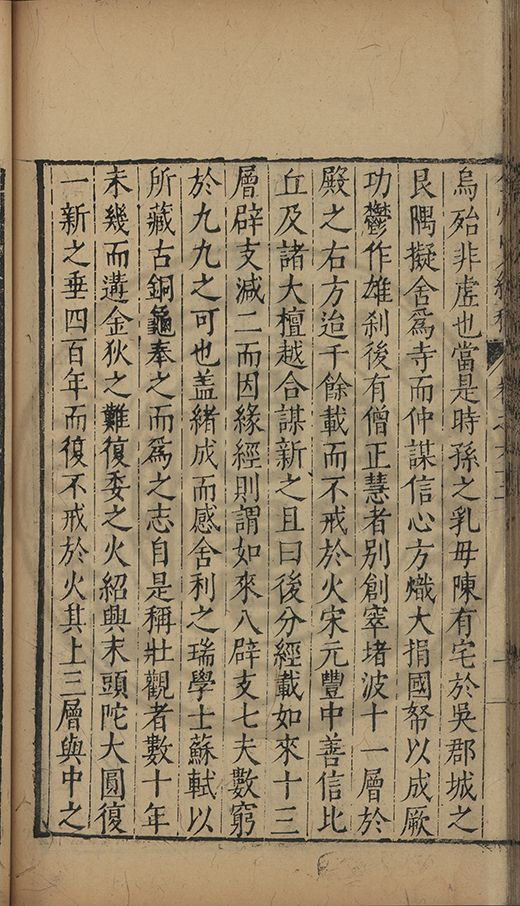 烏殆非虛也當是時孫之乳毋陳有宅於吳郡城之
艮隅擬舍爲寺而仲謀信心方熾大捐國帑以成厥
功鬱作雄剎後有僧正慧者別創窣堵波十一層於
殿之右方迨千餘載而不戒於火宋元豐中善信比
丘及諸大檀越合謀新之且曰後分經載如來十三
層辟支減二而因緣經則謂如來八辟支七夫數窮
於九九之可也盖緒成而感舍利之瑞學士蘇軾以
所藏古銅龜奉之而爲之志自是稱壯觀者數十年
未幾而遘金狄之難復委之火紹興末頭陀大圓復
一新之垂四百年而復不戒於火其上三層與中之